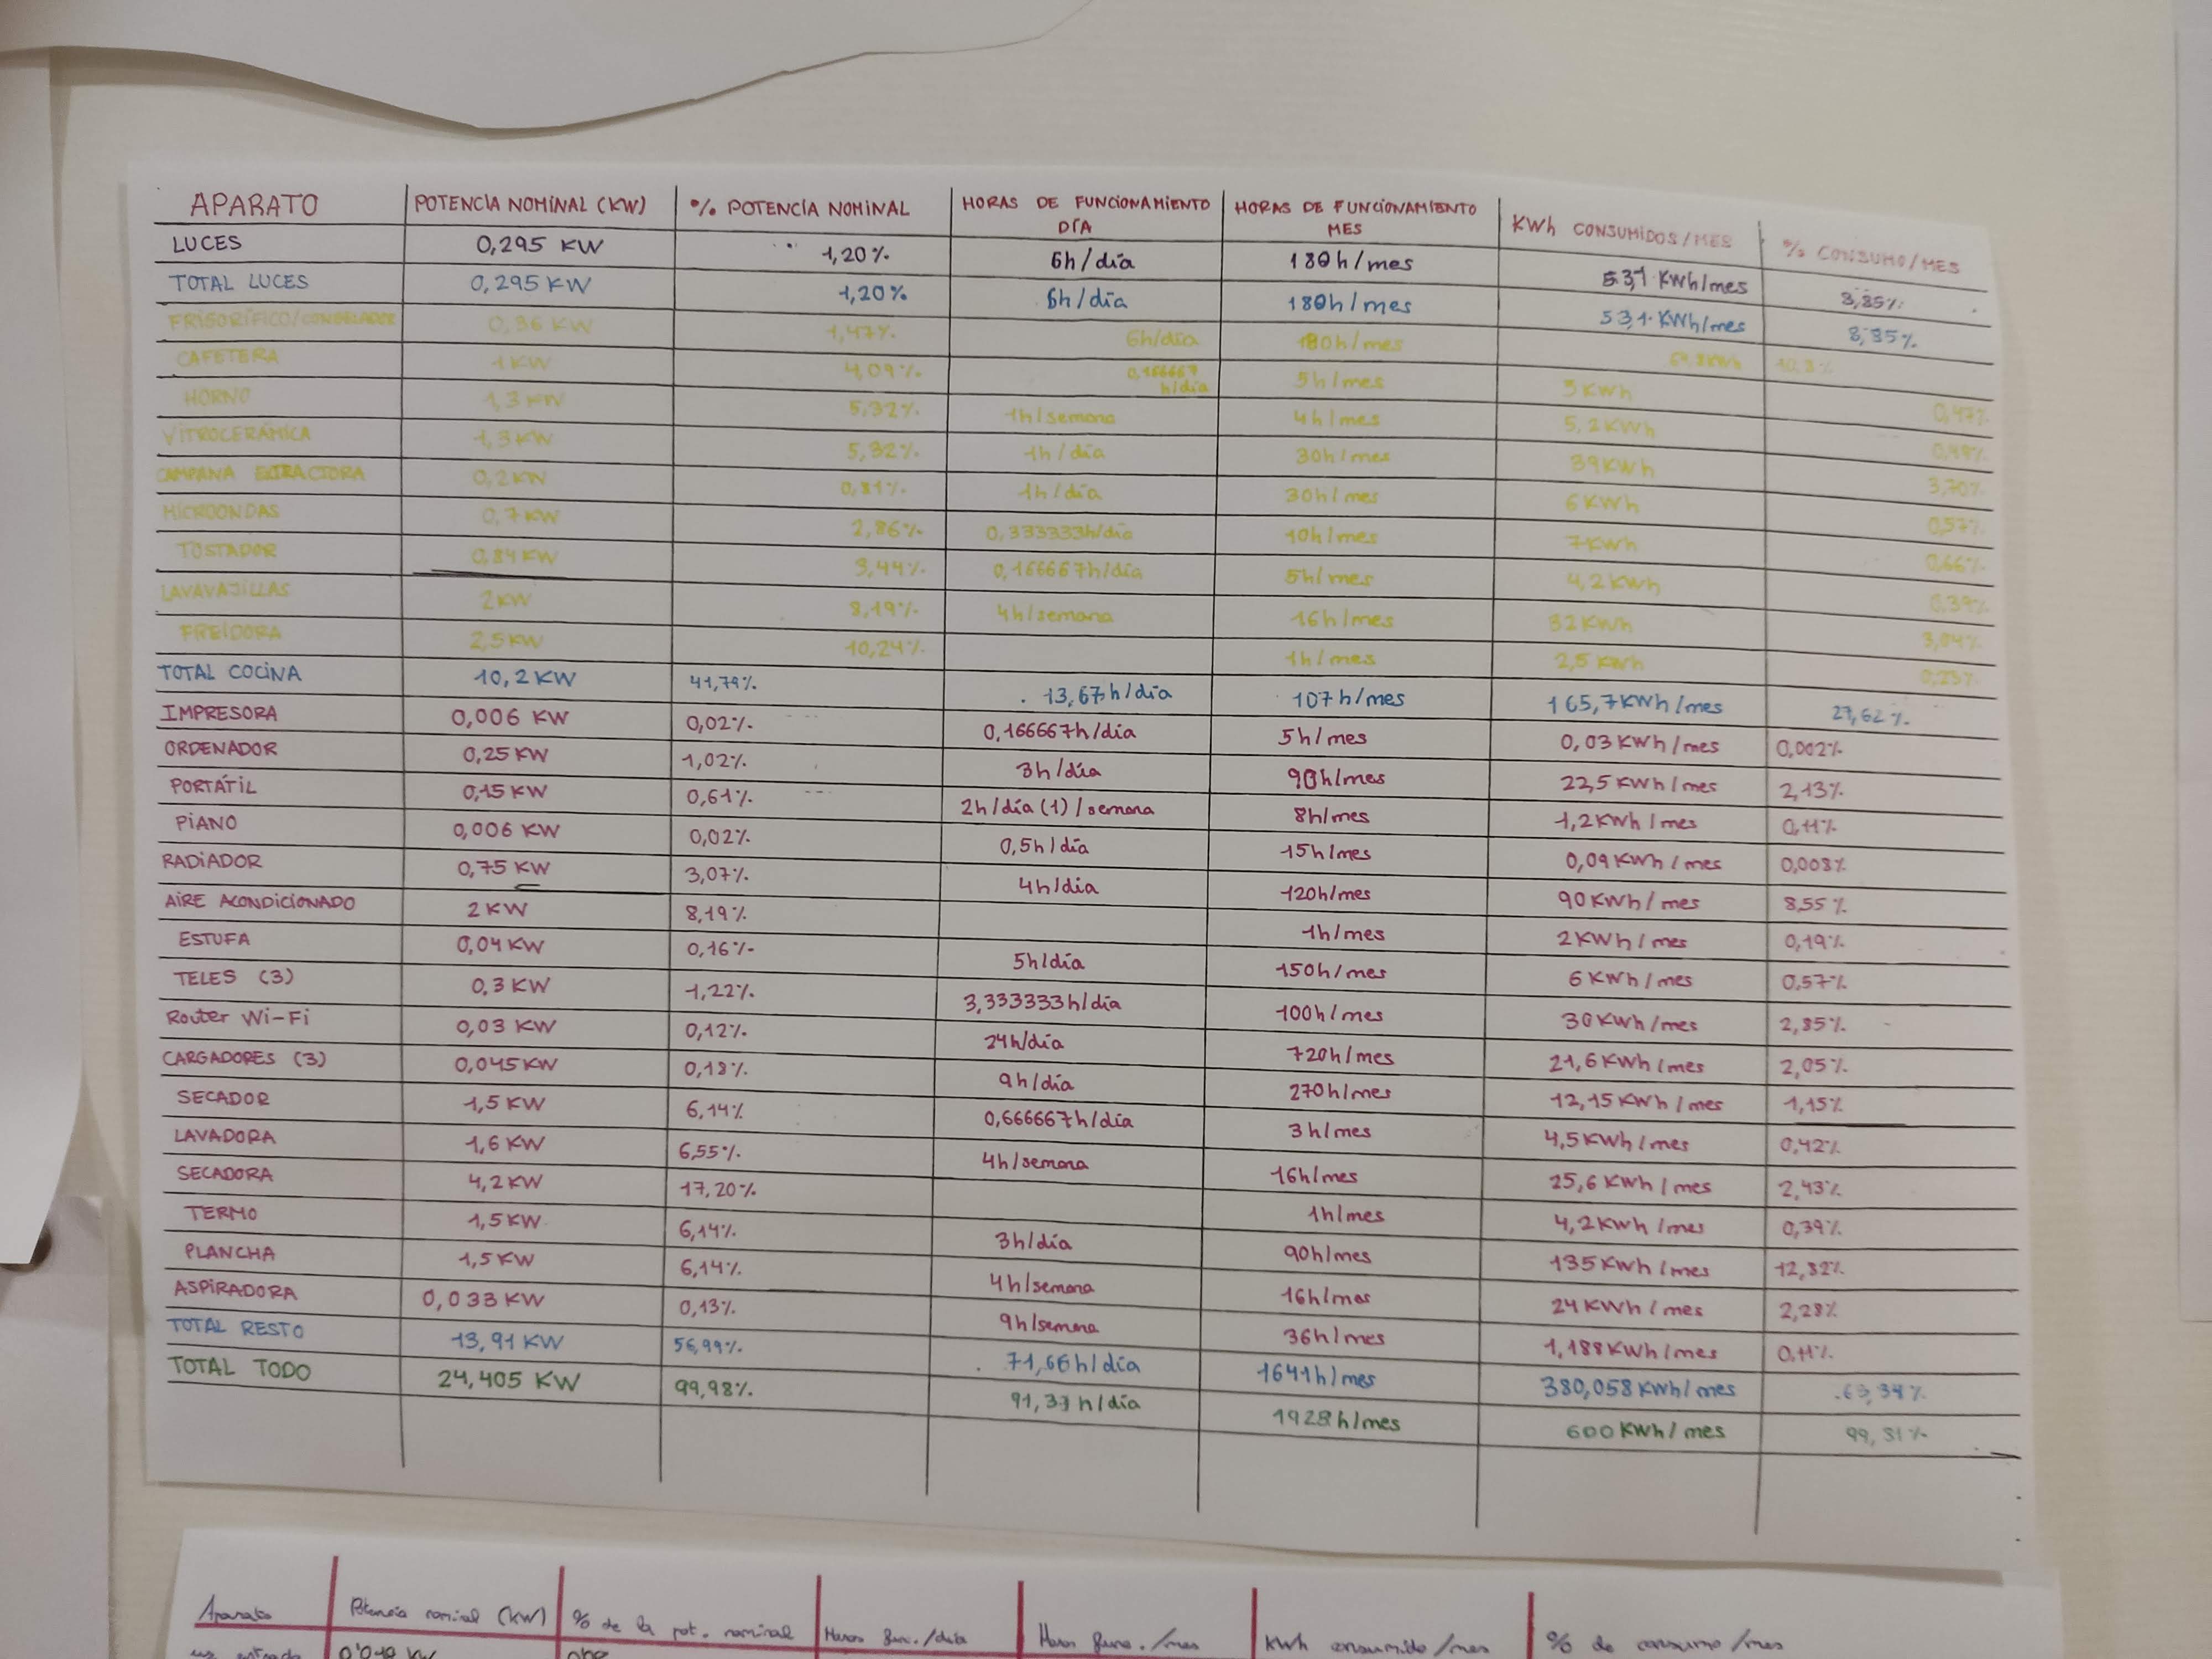 APARATO POTENCIA NOMINAL (KW) % POTENCIA NOMINAL HORAS DE FUNCIONAMIENTO DÍA HORAS DE FUNCIONAMIENTO MES KWh CONSUMIDOS/MES % CONSUMO/MES
LUCES 0,295 KW 1,20% 6h/día 180h/mes 53,1 KWh/mes 8,85%
TOTAL LUCES 0,295 KW 1,20% 6h/día 180h/mes 53,1 KWh/mes 8,85%
FRIGORÍFICO/CONGELADOR 0,36 KW 1,47% 6h/día 180h/mes
CAFETERA 1 KW 4,09% 0,166667 h/día 5h/mes 5KWh 0,47%
HORNO 1,3 KW 5,32% 1h/semana 4h/mes 5,2KWh 0,49%
VITROCERÁMICA 1,3KW 5,32% 1h/día 30h/mes 39KWh 3,70%
CAMPANA EXTRACTORA 0,2KW 0,81% 1h/día 30h/mes 6KWh 0,57%
MICROONDAS 0,7KW 2,86% 0,333333h/día 10h/mes 7KWh 0,66%
TOSTADOR 0,84KW 3,44% 0,166667h/día 5h/mes 4,2KWh 0,39%
LAVAVAJILLAS 2KW 8,19% 4h/semana 16h/mes 32KWh 3,04%
FREÍDORA 2,5KW 10,24% 1h/mes 2,5 KWh 0,23%
TOTAL COCINA 10,2 KW 41,79% 13,67h/día 107h/mes 165,7KWh/mes 27,62%
IMPRESORA 0,006 KW 0,02% 0,166667h/día 5h/mes 0,03 KWh/mes 0,002%
ORDENADOR 0,25 KW 1,02% 3h/día 90h/mes 22,5 KWh/mes 2,13%
PORTÁTIL 0,15 KW 0,61% 2h/día (1) / semana 8h/mes 1,2KWh/mes 0,11%
PIANO 0,006 KW 0,02% 0,5h/día 15h/mes 0,09KWh/mes 0,008%
RADIADOR 0,75 KW 3,07% 4h/día 120h/mes 90KWh/mes 8,55%
AIRE ACONDICIONADO 2 KW 8,19% 1h/mes 2KWh/mes 0,19%
ESTUFA 0,04 KW 0,16% 5h/día 150h/mes 6 KWh/mes 0,57%
TELES (3) 0,3 KW 1,22% 3,333333h/día 100h/mes 30KWh/mes 2,85%
Router Wi-Fi 0,03 KW 0,12% 24h/día 720h/mes 21,6KWh/mes 2,05%
CARGADORES (3) 0,045KW 0,18% 9h/día 270h/mes 12,15KWh/mes 1,15%
SECADOR 1,5 KW 6,14% 0,666667h/día 3h/mes 4,5KWh/mes 0,42%
LAVADORA 1,6 KW 6,55% 4h/semana 16h/mes 25,6 KWh/mes 2,43%
SECADORA 4,2KW 17,20% 1h/mes 4,2KWh/mes 0,39%
TERMO 1,5KW 6,14% 3h/día 90h/mes 135KWh/mes 12,82%
PLANCHA 1,5 KW 6,14% 4h/semana 16h/mes 24KWh/mes 2,28%
ASPIRADORA 0,033 KW 0,13% 9h/semana 36h/mes 1,188KWh/mes 0,11%
TOTAL RESTO 13,91 KW 56,99% 71,66h/día 1641h/mes 380,058KWh/mes 63,34%
TOTAL TODO 24,405 KW 99,98% 91,33h/día 1928h/mes 600KWh/mes 99,81%
Aparato Potencia nominal (KW) % de la pot. nominal Horas fun./día Horas func./mes KWh consumido/mes % de consumo/mes